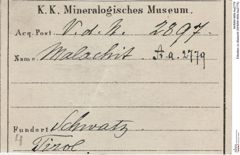 K. K. Mineralogisches Museum.
Acq. Post V. d. N. 2897.
Name Malachit A.a. 2779
Fundort Schwatz
Tirol